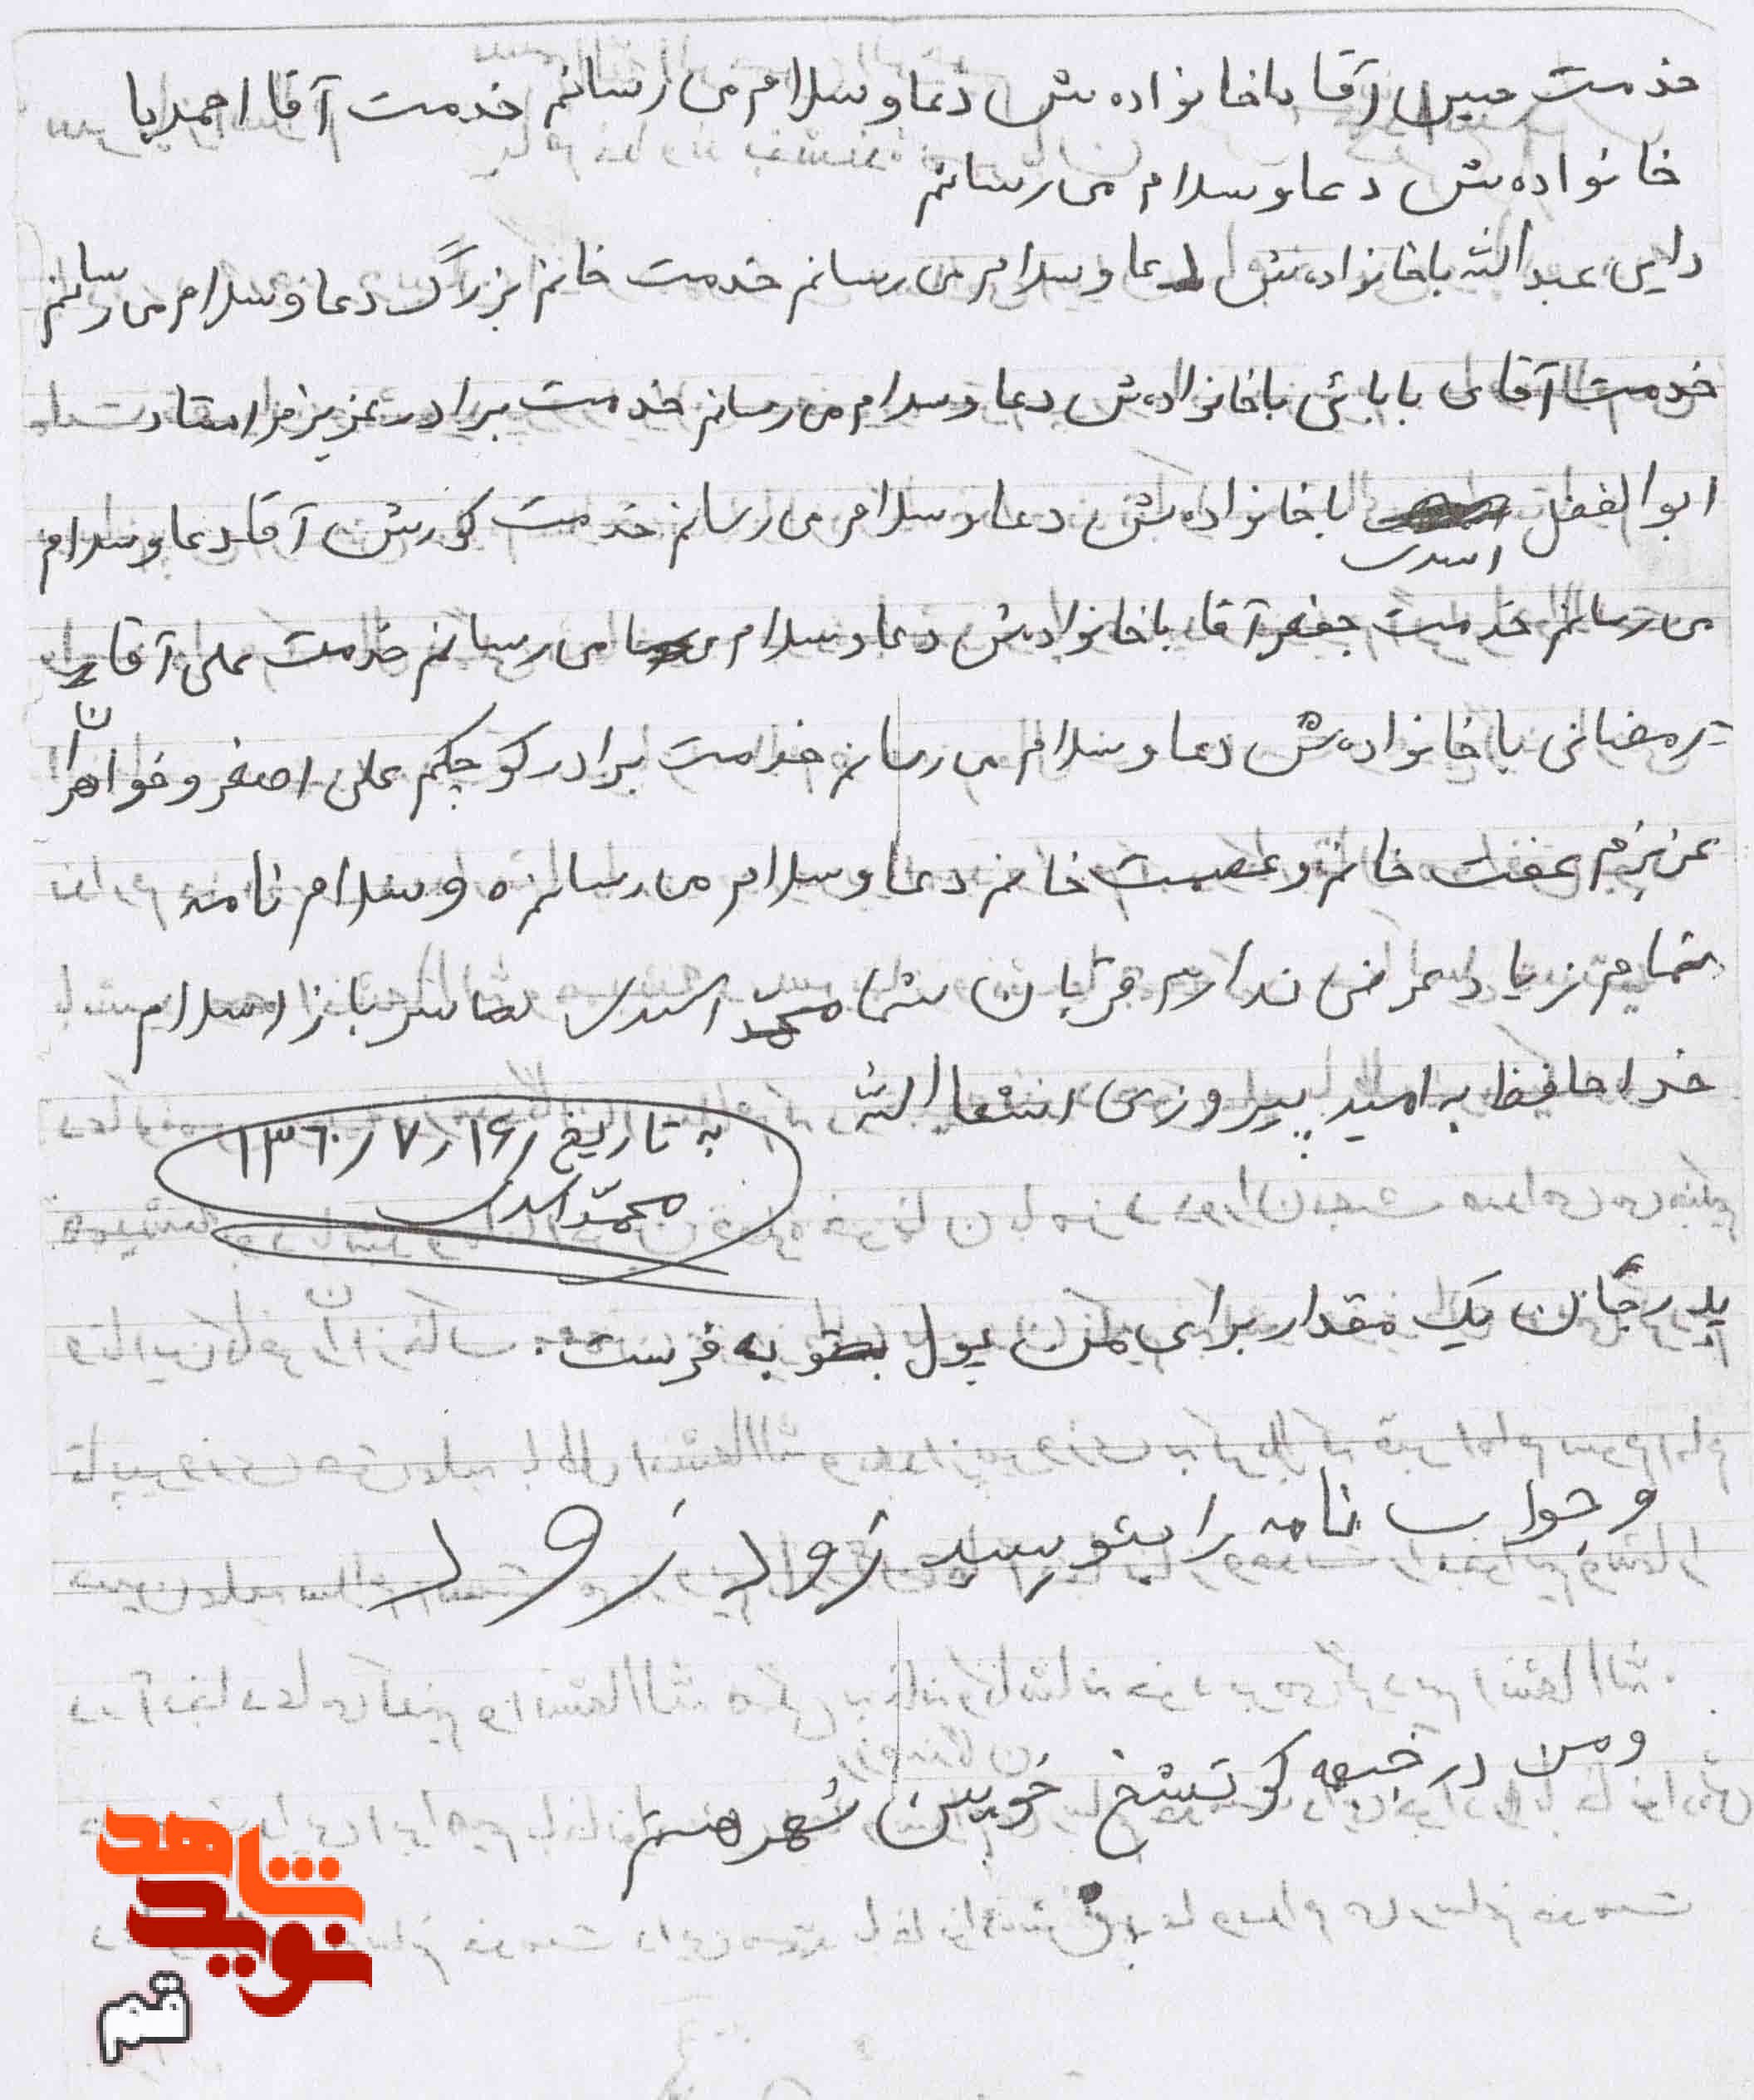 خدمت حسین آقا با خانواده ش دعا و سلام می رسانم خدمت آقا احمد با
خانواده ش دعا و سلام می رسانم
دایی عبدالله با خانواده ش دعا و سلام می رسانم خدمت خانم بزرگ دعا و سلام می رسانم
خدمت آقای بابائی با خانواده ش دعا و سلام می رسانم خدمت برادر عزیزم استاد
ابوالفضل اسدی با خانواده ش دعا و سلام می رسانم خدمت کورش آقا دعا و سلام
می رسانم خدمت جعفر آقا با خانواده ش دعا و سلام می رسانم خدمت علی آقا
رمضانی با خانواده ش دعا و سلام می رسانم خدمت برادر کوچکم علی اصغر و خواهران
عزیزم عفت خانم و عصمت خانم دعا و سلام می رسانم ه و سلام نامه
تمام زیاد عرضی ندارم قربان شما محمّد اسدی سرباز اسلام
خدا حافظ به امید پیروزی انشعاالله
به تاریخ ۱۳۶۰/۷/۱۶
محمّد اسدی
پدرجان یک مقدار برای من پول به فرست.
و جواب نامه را بنویسید زود زود
و من در جبهه کوتشخ خونین شهر هستم
شاهد
نوید
قم